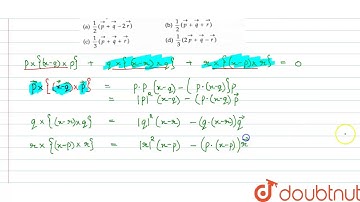 (a) 1/2 (p⃗ + q⃗ - 2r⃗) (b) 1/2 (p⃗ + q⃗ + r⃗)
(c) 1/3 (p⃗ + q⃗ + r⃗) (d) 1/3 (2p⃗ + q⃗ - r⃗)
p×{(x-q)×p} + q×{(x-r)×q} + r×{(x-p)×r} = 0
p⃗×{(x⃗-q)×p⃗} = p·p (x-q) - (p·(x-q))p
= |p|²(x-q) - (p·(x-q))p⃗
q×{(x-r)×q} = |q|²(x-r) - (q·(x-r))q⃗
r×{(x-p)×r} = |r|²(x-p) - (p·(x-p))r
doubtnut